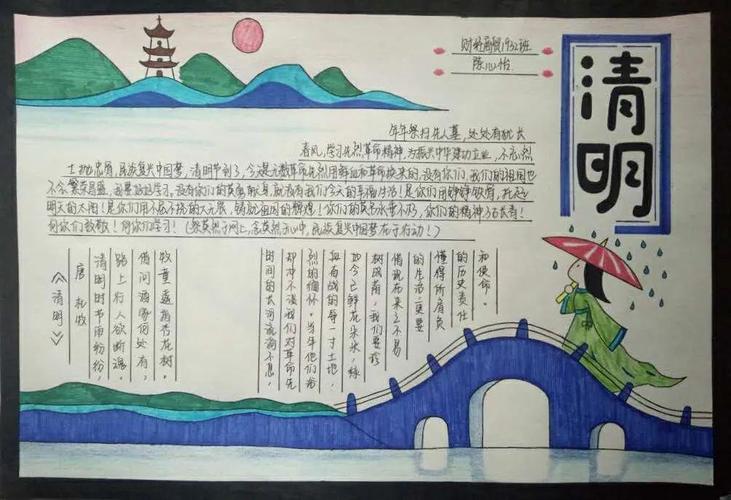 财税商贸1932班
陈心怡
清明
年年祭扫先人墓,处处有犹长
春风,学习先烈革命精神,为振兴中华建功立业,不忘烈
士抛忠骨,民族复兴中国梦。清明节到了,今天是无数革命先烈用鲜血和革命换来的,没有你们,我们的祖国也
不会繁荣昌盛,我要好好学习。没有你们的英勇献身,就没有我们今天的幸福生活!是你们用铮铮铁骨,托起
明天的太阳!是你们用不屈不挠的大无畏,铸就祖国的辉煌!你们的英名永垂不朽,你们的精神万古长青!
向你们致敬!向你们学习!(祭英烈于网上,念英烈于心中,民族复兴中国梦在于行动!)
《清明》
唐 杜牧
清明时节雨纷纷,
路上行人欲断魂。
借问酒家何处有,
牧童遥指杏花树。
时间的长河流淌不息,
却冲不淡我们对革命先
烈的缅怀。当年他们浴
血奋战的每一寸土地,
如今已鲜花朵朵,绿
树成荫,我们要珍
惜现在来之不易
的生活,更要
懂得所肩负
的历史责任
和使命。